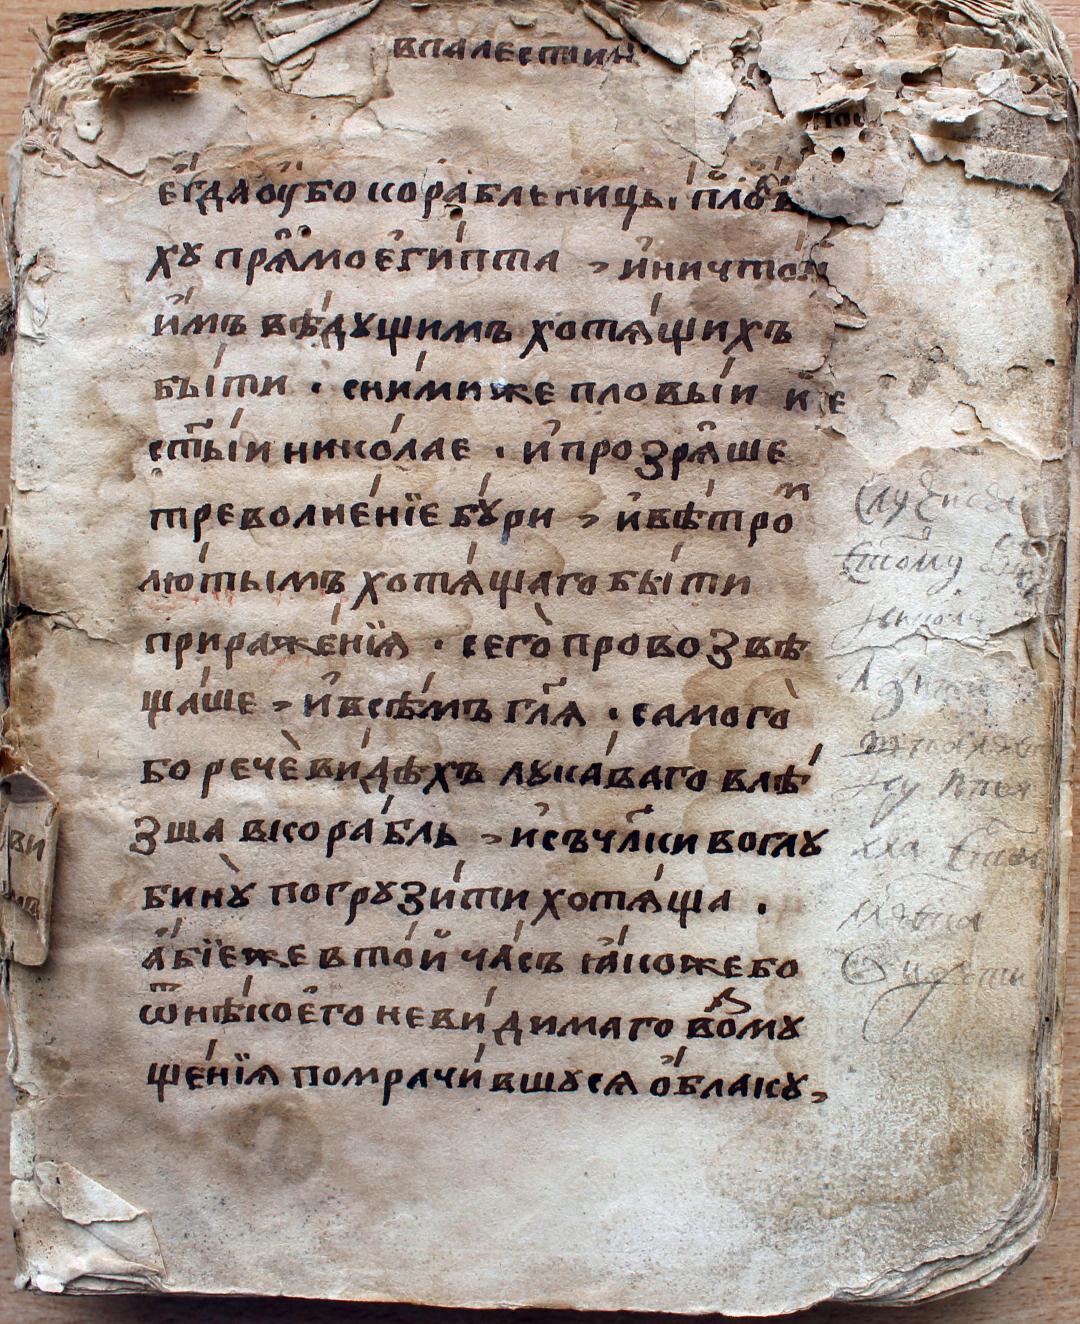 впалестин
егда оубо корабльницы пловѧ
ху прѧмо египта , и ничтоⷤ
имъ вѣдущимъ хотѧщихъ
быти . с ними же пловыи и е
ст҃ыи николае . и прозрѧше
треволненїе бури , и вѣтроⷨ
лютымъ хотѧщаго быти
прираженїѧ . сего провозвѣ
щаше , и всѣмъ гл҃ѧ . самого
бо рече видѣхъ лукаваго влѣ
зша вкорабль , и съ чл҃ки во глу
бину погрузити хотѧща .
абїе же в той часъ ꙗкоже бо
ѿ нѣкоего невидимаго воⷥму
щенїѧ помрачившусѧ облаку ,
ви